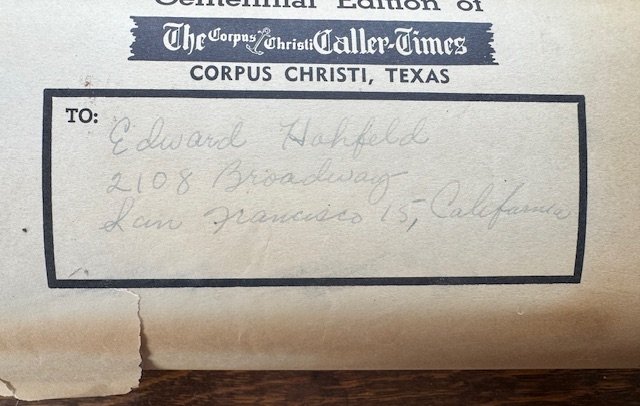 Centennial Edition of
The Corpus Christi Caller-Times
CORPUS CHRISTI, TEXAS
TO:
Edward Hohfeld
2108 Broadway
San Francisco 15, California